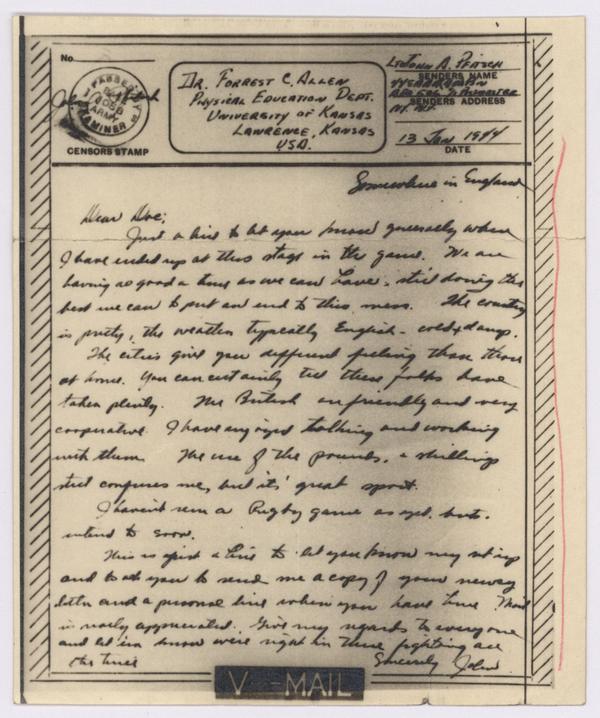 No.
PASSED BY
ARMY EXAMINER
CENSORS STAMP
DR. FORREST C. ALLEN
PHYSICAL EDUCATION DEPT.
UNIVERSITY OF KANSAS
LAWRENCE, KANSAS
USA.
LT JOHN A. PFITSCH
SENDERS NAME
APO 506 % POSTMASTER
SENDERS ADDRESS
N.Y. N.Y.
13 JAN 1944
DATE
Somewhere in England
Dear Doc;
Just a line to let you know generally where
I have ended up at this stage in the game. We are
having as good a time as we can have, still doing the
best we can to put an end to this mess. The country
is pretty, the weather typically English - cold & damp.
The cities give you different feeling than those
at home. You can certainly tell these folks have
taken plenty. The British are friendly and very
cooperative. I have enjoyed talking and working
with them. The use of the pounds, & shillings
still confuses me, but it's great sport.
I haven't seen a Rugby game as yet, but
intend to soon.
This is just a line to let you know my set up
and to ask you to send me a copy of your newsy
letter and a personal line when you have time. Mail
is really appreciated. Give my regards to everyone
and let em know we're right in there fighting all
the time
Sincerely John
V - MAIL